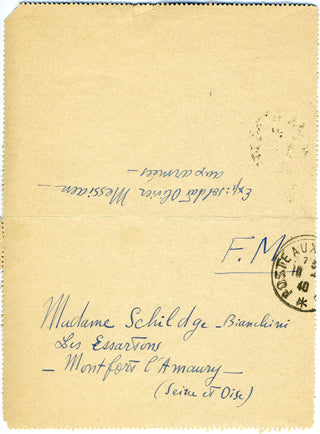 Exp: soldat Olivier Messiaen -
aux armées -
F.M
POSTE AUX
18
40
Madame Schildge - Bianchini
Les Essartons
- Montfort l'Amaury -
(Seine et Oise)